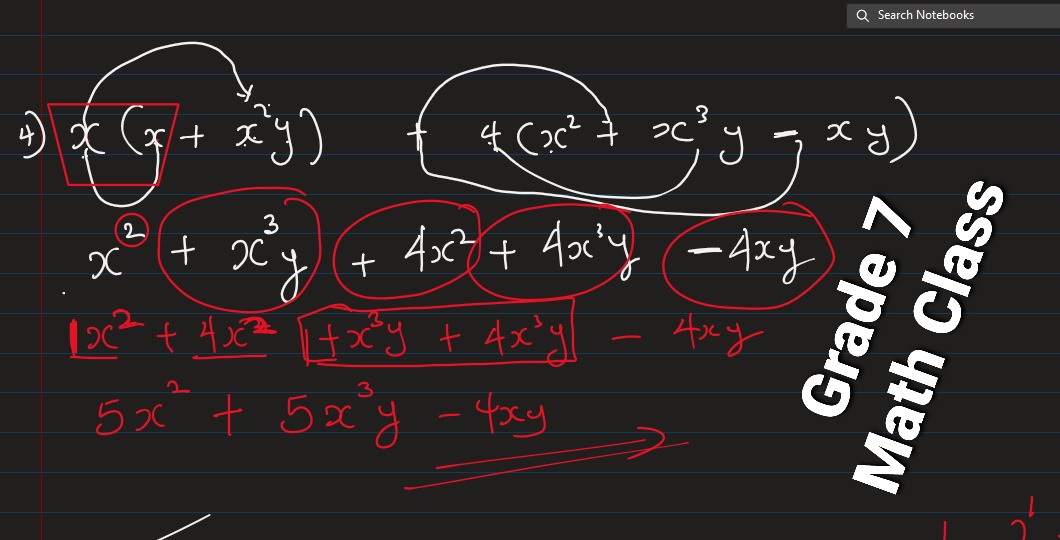 Search Notebooks
4) x (x + x²y) + 4 (x² + x³y - xy)
x² + x³y + 4x² + 4x³y - 4xy
1x² + 4x² + x³y + 4x³y - 4xy
5x² + 5x³y - 4xy
Grade 7
Math Class